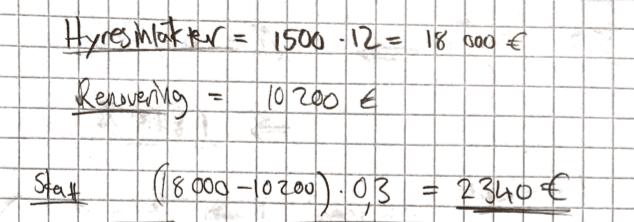 Hyresinläkter = 1500 · 12 = 18 000 €
Renovering = 10 200 €
Skatt (18 000 - 10 200) · 0,3 = 2340 €